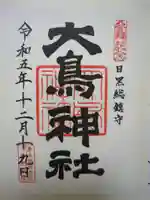 目黒総鎮守
大鳥神社
令和五年十二月十九日